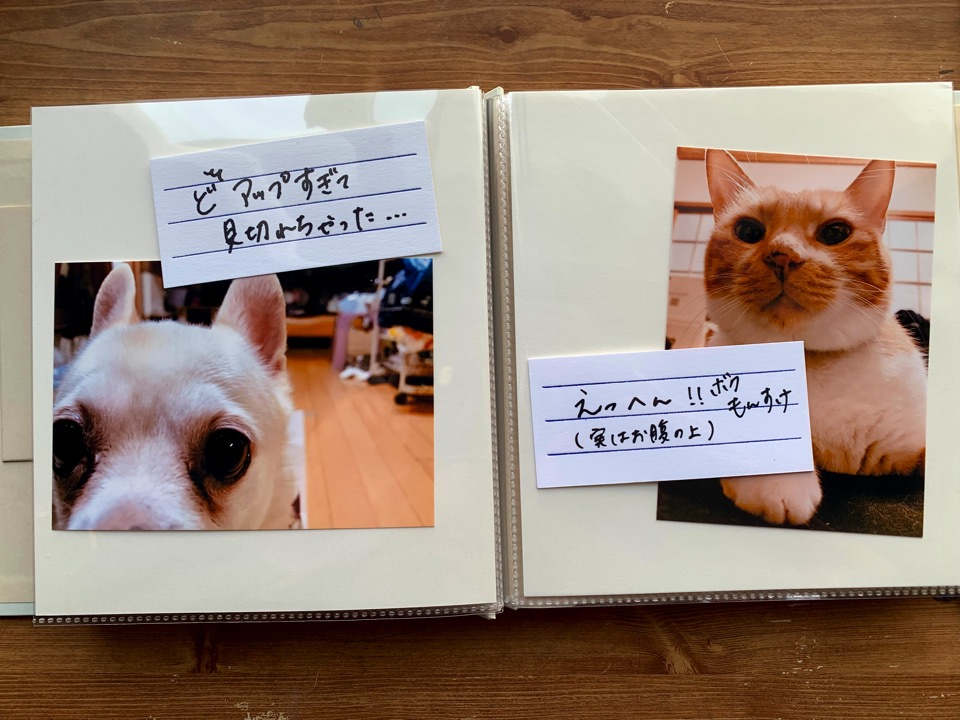 どアップすぎて
見切れちゃった…
えっへん!!ボク
もんすけ
(実はお腹の上)